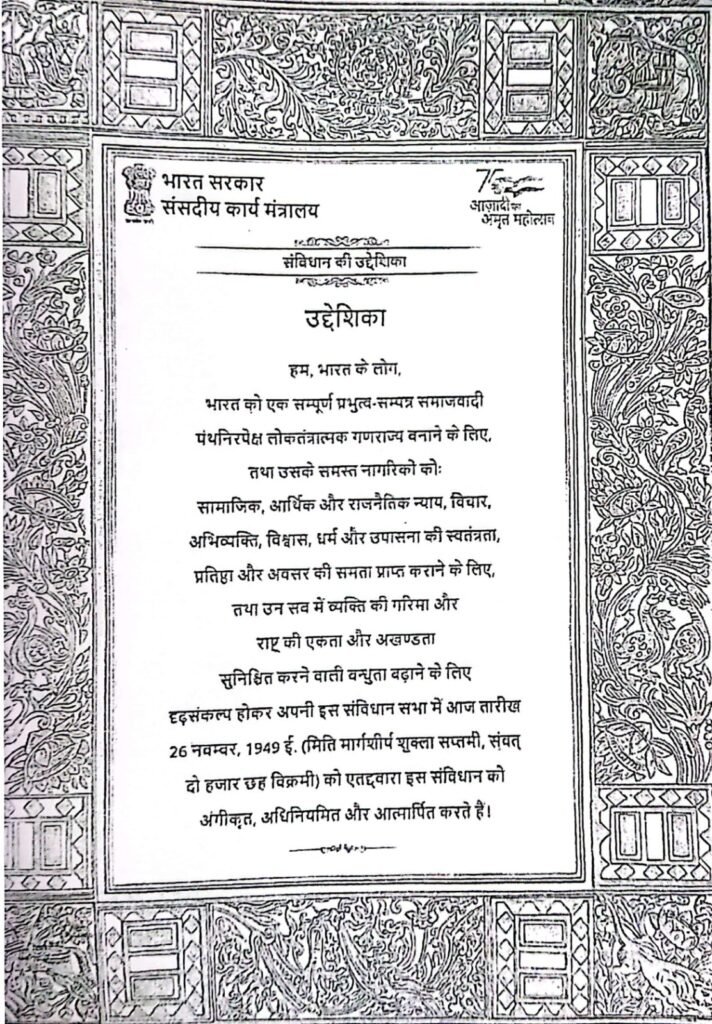 भारत सरकार
संसदीय कार्य मंत्रालय
75
आज़ादी का
अमृत महोत्सव
संविधान की उद्देशिका
उद्देशिका
हम, भारत के लोग,
भारत को एक सम्पूर्ण प्रभुत्व-सम्पन्न समाजवादी
पंथनिरपेक्ष लोकतंत्रात्मक गणराज्य बनाने के लिए,
तथा उसके समस्त नागरिकों को:
सामाजिक, आर्थिक और राजनैतिक न्याय, विचार,
अभिव्यक्ति, विश्वास, धर्म और उपासना की स्वतंत्रता,
प्रतिष्ठा और अवसर की समता प्राप्त कराने के लिए,
तथा उन सब में व्यक्ति की गरिमा और
राष्ट्र की एकता और अखण्डता
सुनिश्चित करने वाली बन्धुता बढ़ाने के लिए
दृढ़संकल्प होकर अपनी इस संविधान सभा में आज तारीख
26 नवम्बर, 1949 ई. (मिति मार्गशीर्ष शुक्ला सप्तमी, संवत्
दो हजार छह विक्रमी) को एतद्द्वारा इस संविधान को
अंगीकृत, अधिनियमित और आत्मार्पित करते हैं।